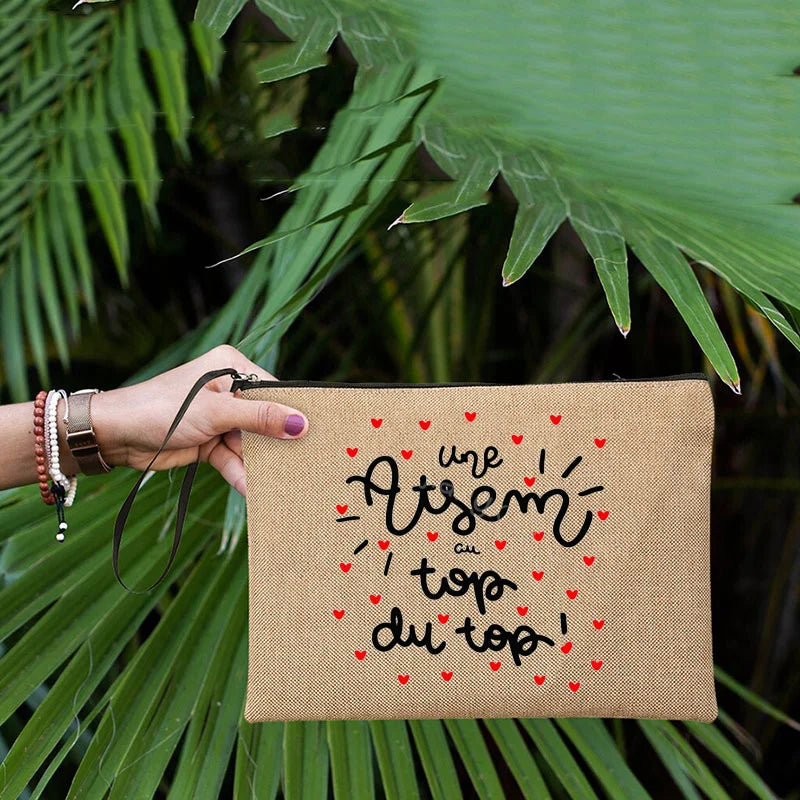 une
Atsem
au
top
du top !